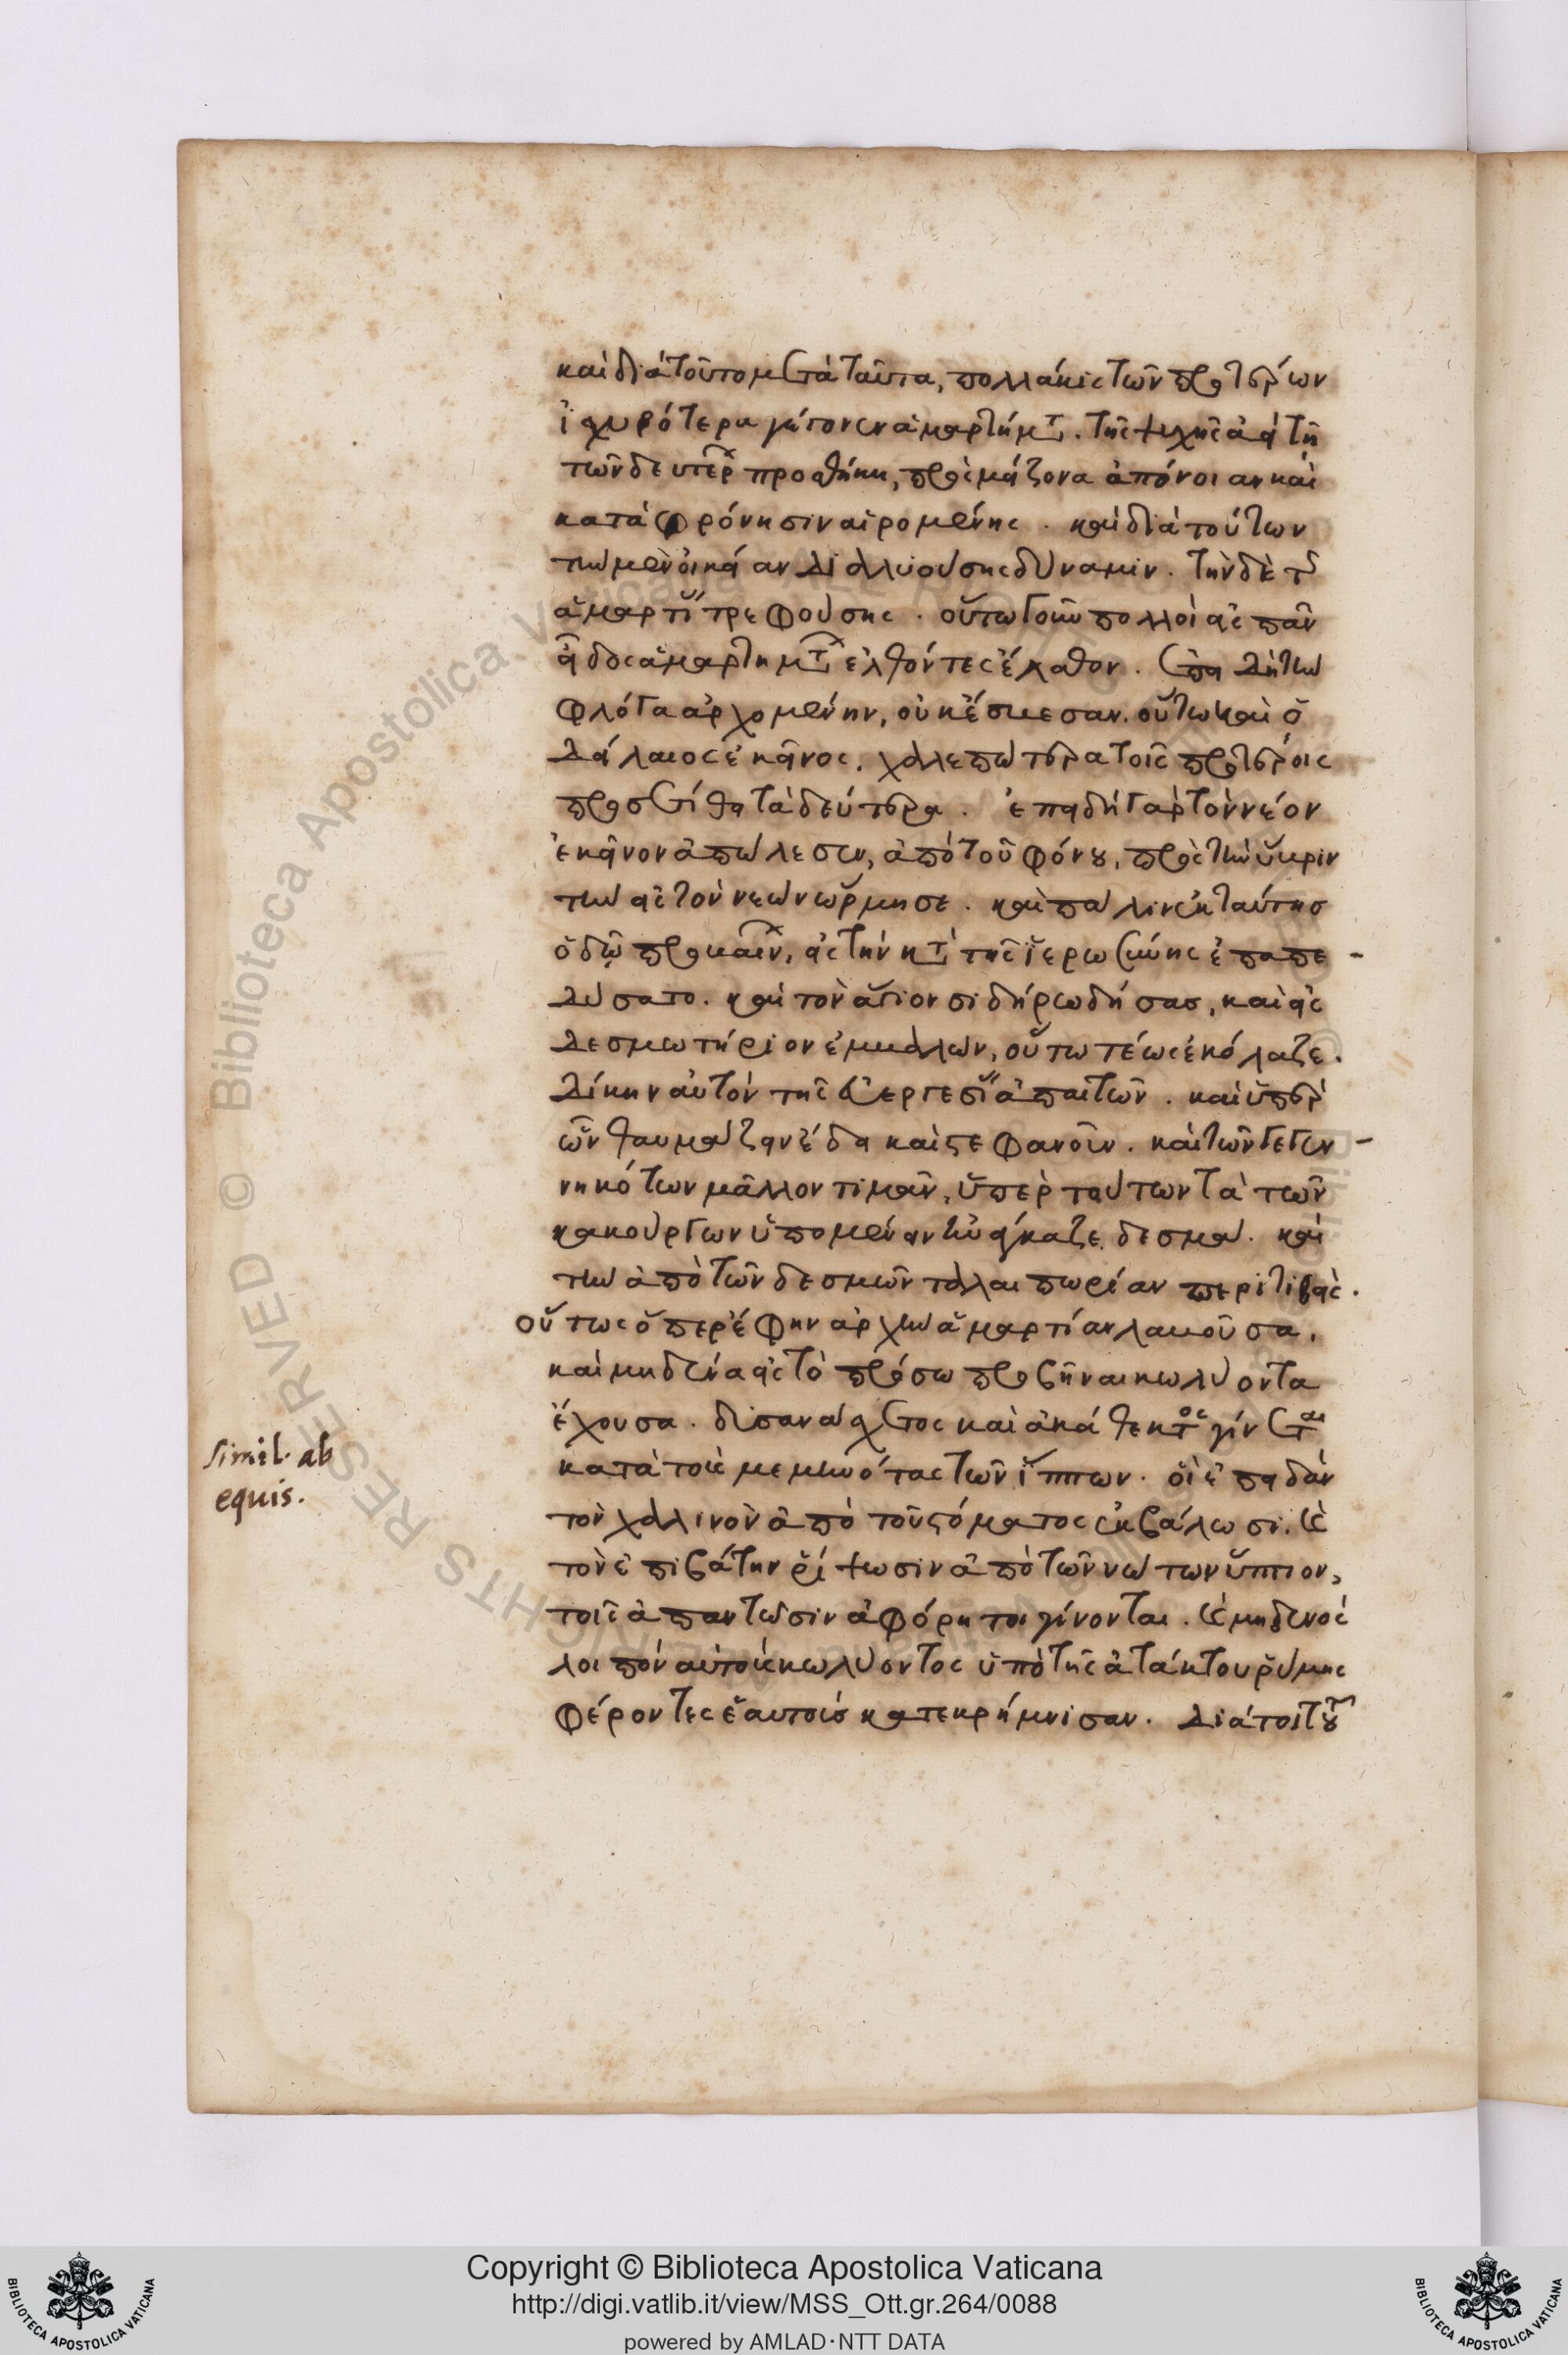 καὶ διὰ τοῦτο μετὰ ταῦτα, πολλάκις τῶν προτέρων
ἰσχυρότερα γέγονεν ἁμαρτήματα. τῆς ψυχῆς ἀεὶ τῇ
τῶν δευτέρων προσθήκῃ, πρὸς μείζονα ἀπόνοιαν καὶ
καταφρόνησιν αἰρομένης. καὶ διὰ τούτων
τὴν μὲν οἰκείαν διαλυούσης δύναμιν. τὴν δὲ τῆς
ἁμαρτίας τρεφούσης. οὕτω γοῦν πολλοὶ εἰς πᾶν
εἶδος ἁμαρτημάτων ἐλθόντες ἔλαθον. ἐπειδὴ τὴν
φλόγα ἀρχομένην, οὐκ ἔσβεσαν. οὕτω καὶ ὁ
δείλαιος ἐκεῖνος. χαλεπώτερα τοῖς προτέροις
προστίθει τὰ δεύτερα. ἐπειδὴ γὰρ τὸν νέον
ἐκεῖνον ἀπώλεσεν, ἀπὸ τοῦ φόνου, πρὸς τὴν ὕβριν
τὴν εἰς τὸν νεὼν ὥρμησε. καὶ πάλιν ἐκ ταύτης
ὁδῷ προβαίνων, εἰς τὴν κατὰ τῆς ἱερωσύνης ἐπαπε-
δύσατο. καὶ τὸν ἅγιον σιδήρῳ δήσας, καὶ εἰς
δεσμωτήριον ἐμβαλὼν, οὕτω τέως ἐκόλαζε.
δίκην αὐτὸν τῆς εὐεργεσίας ἀπαιτῶν. καὶ ὑπὲρ
ὧν θαυμάζειν ἔδει καὶ στεφανοῦν. καὶ τῶν γεγεν-
νηκότων μᾶλλον τιμᾶν, ὑπὲρ τούτων τὰ τῶν
κακούργων ὑπομένειν ἠνάγκαζε δεσμά. καὶ
τὴν ἀπὸ τῶν δεσμῶν ταλαιπωρίαν περιτιθείς.
οὕτως ὅπερ ἔφην ἀρχὴν ἁμαρτία λαβοῦσα,
καὶ μηδένα εἰς τὸ πρόσω προβῆναι κωλύοντα
ἔχουσα. δυσανάσχετος καὶ ἀκάθεκτος γίνεται
κατὰ τοὺς μεμηνότας τῶν ἵππων. οἳ ἐπειδὰν
τὸν χαλινὸν ἀπὸ τοῦ στόματος ἐκβάλωσι. καὶ
τὸν ἐπιβάτην ῥίψωσιν ἀπὸ τῶν νώτων ὕπτιον,
τοῖς ἀπαντῶσιν ἀφόρητοι γίνονται. καὶ μηδενὸς
λοιπὸν αὐτοὺς κωλύοντος ὑπὸ τῆς ἀτάκτου ῥύμης
φέροντες ἑαυτοὺς κατεκρήμνισαν. διὰ τοι τοῦτο
Simil. ab
equis.
Copyright © Biblioteca Apostolica Vaticana
http://digi.vatlib.it/view/MSS_Ott.gr.264/0088
powered by AMLAD·NTT DATA
BIBLIOTECA APOSTOLICA VATICANA
BIBLIOTECA APOSTOLICA VATICANA